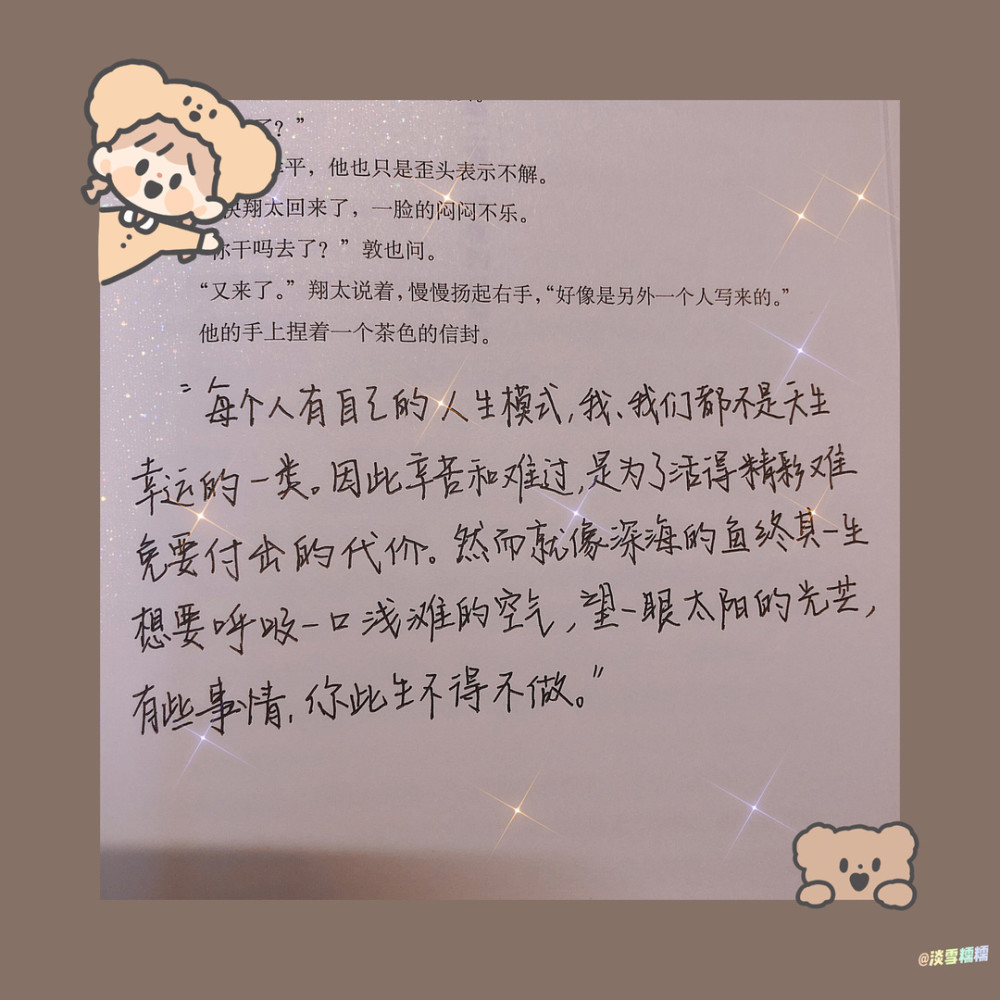 了？”
平，他也只是歪头表示不解。
翔太回来了，一脸的闷闷不乐。
你干吗去了？”敦也问。
“又来了。”翔太说着，慢慢扬起右手，“好像是另外一个人写来的。”
他的手上捏着一个茶色的信封。
“每个人有自己的人生模式，我、我们都不是天生
幸运的一类。因此辛苦和难过，是为了活得精彩难
免要付出的代价。然而就像深海的鱼终其一生
想要呼吸一口浅滩的空气，望一眼太阳的光芒，
有些事情，你此生不得不做。”
@淡雪糯糯